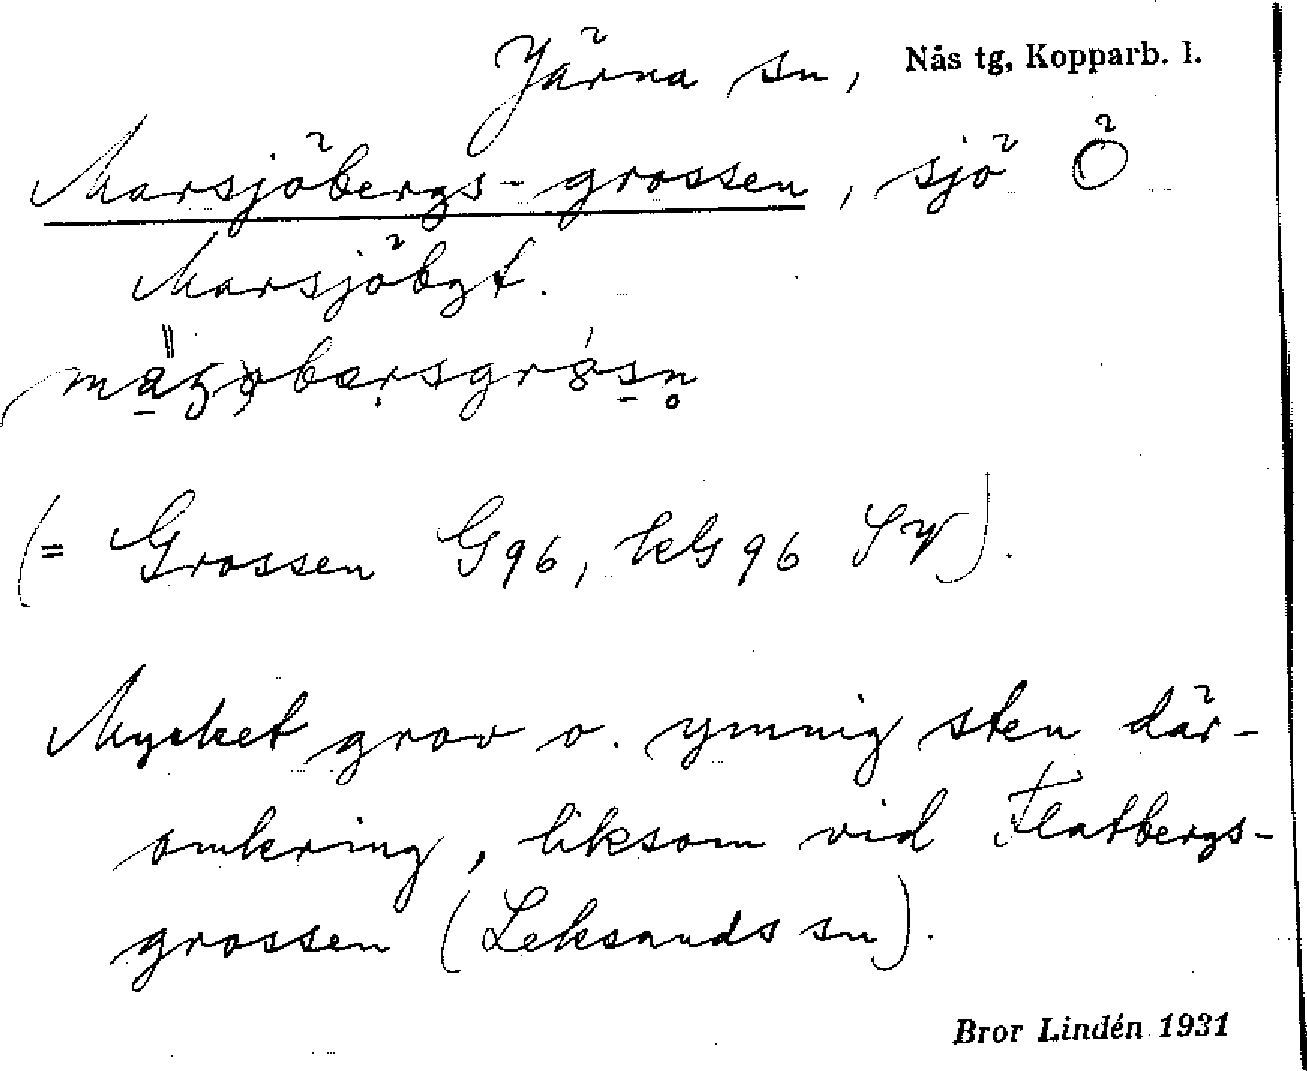 Järna sn, Nås tg, Kopparb. l.
Marsjöbergs-grossen, sjö Ö
Marsjöbgt.
(= Grossen G96, kG96 SV).
Mycket grov o. ymnig sten där-
omkring, liksom vid Flatbergs-
grossen (Leksands sn).
Bror Lindén 1931